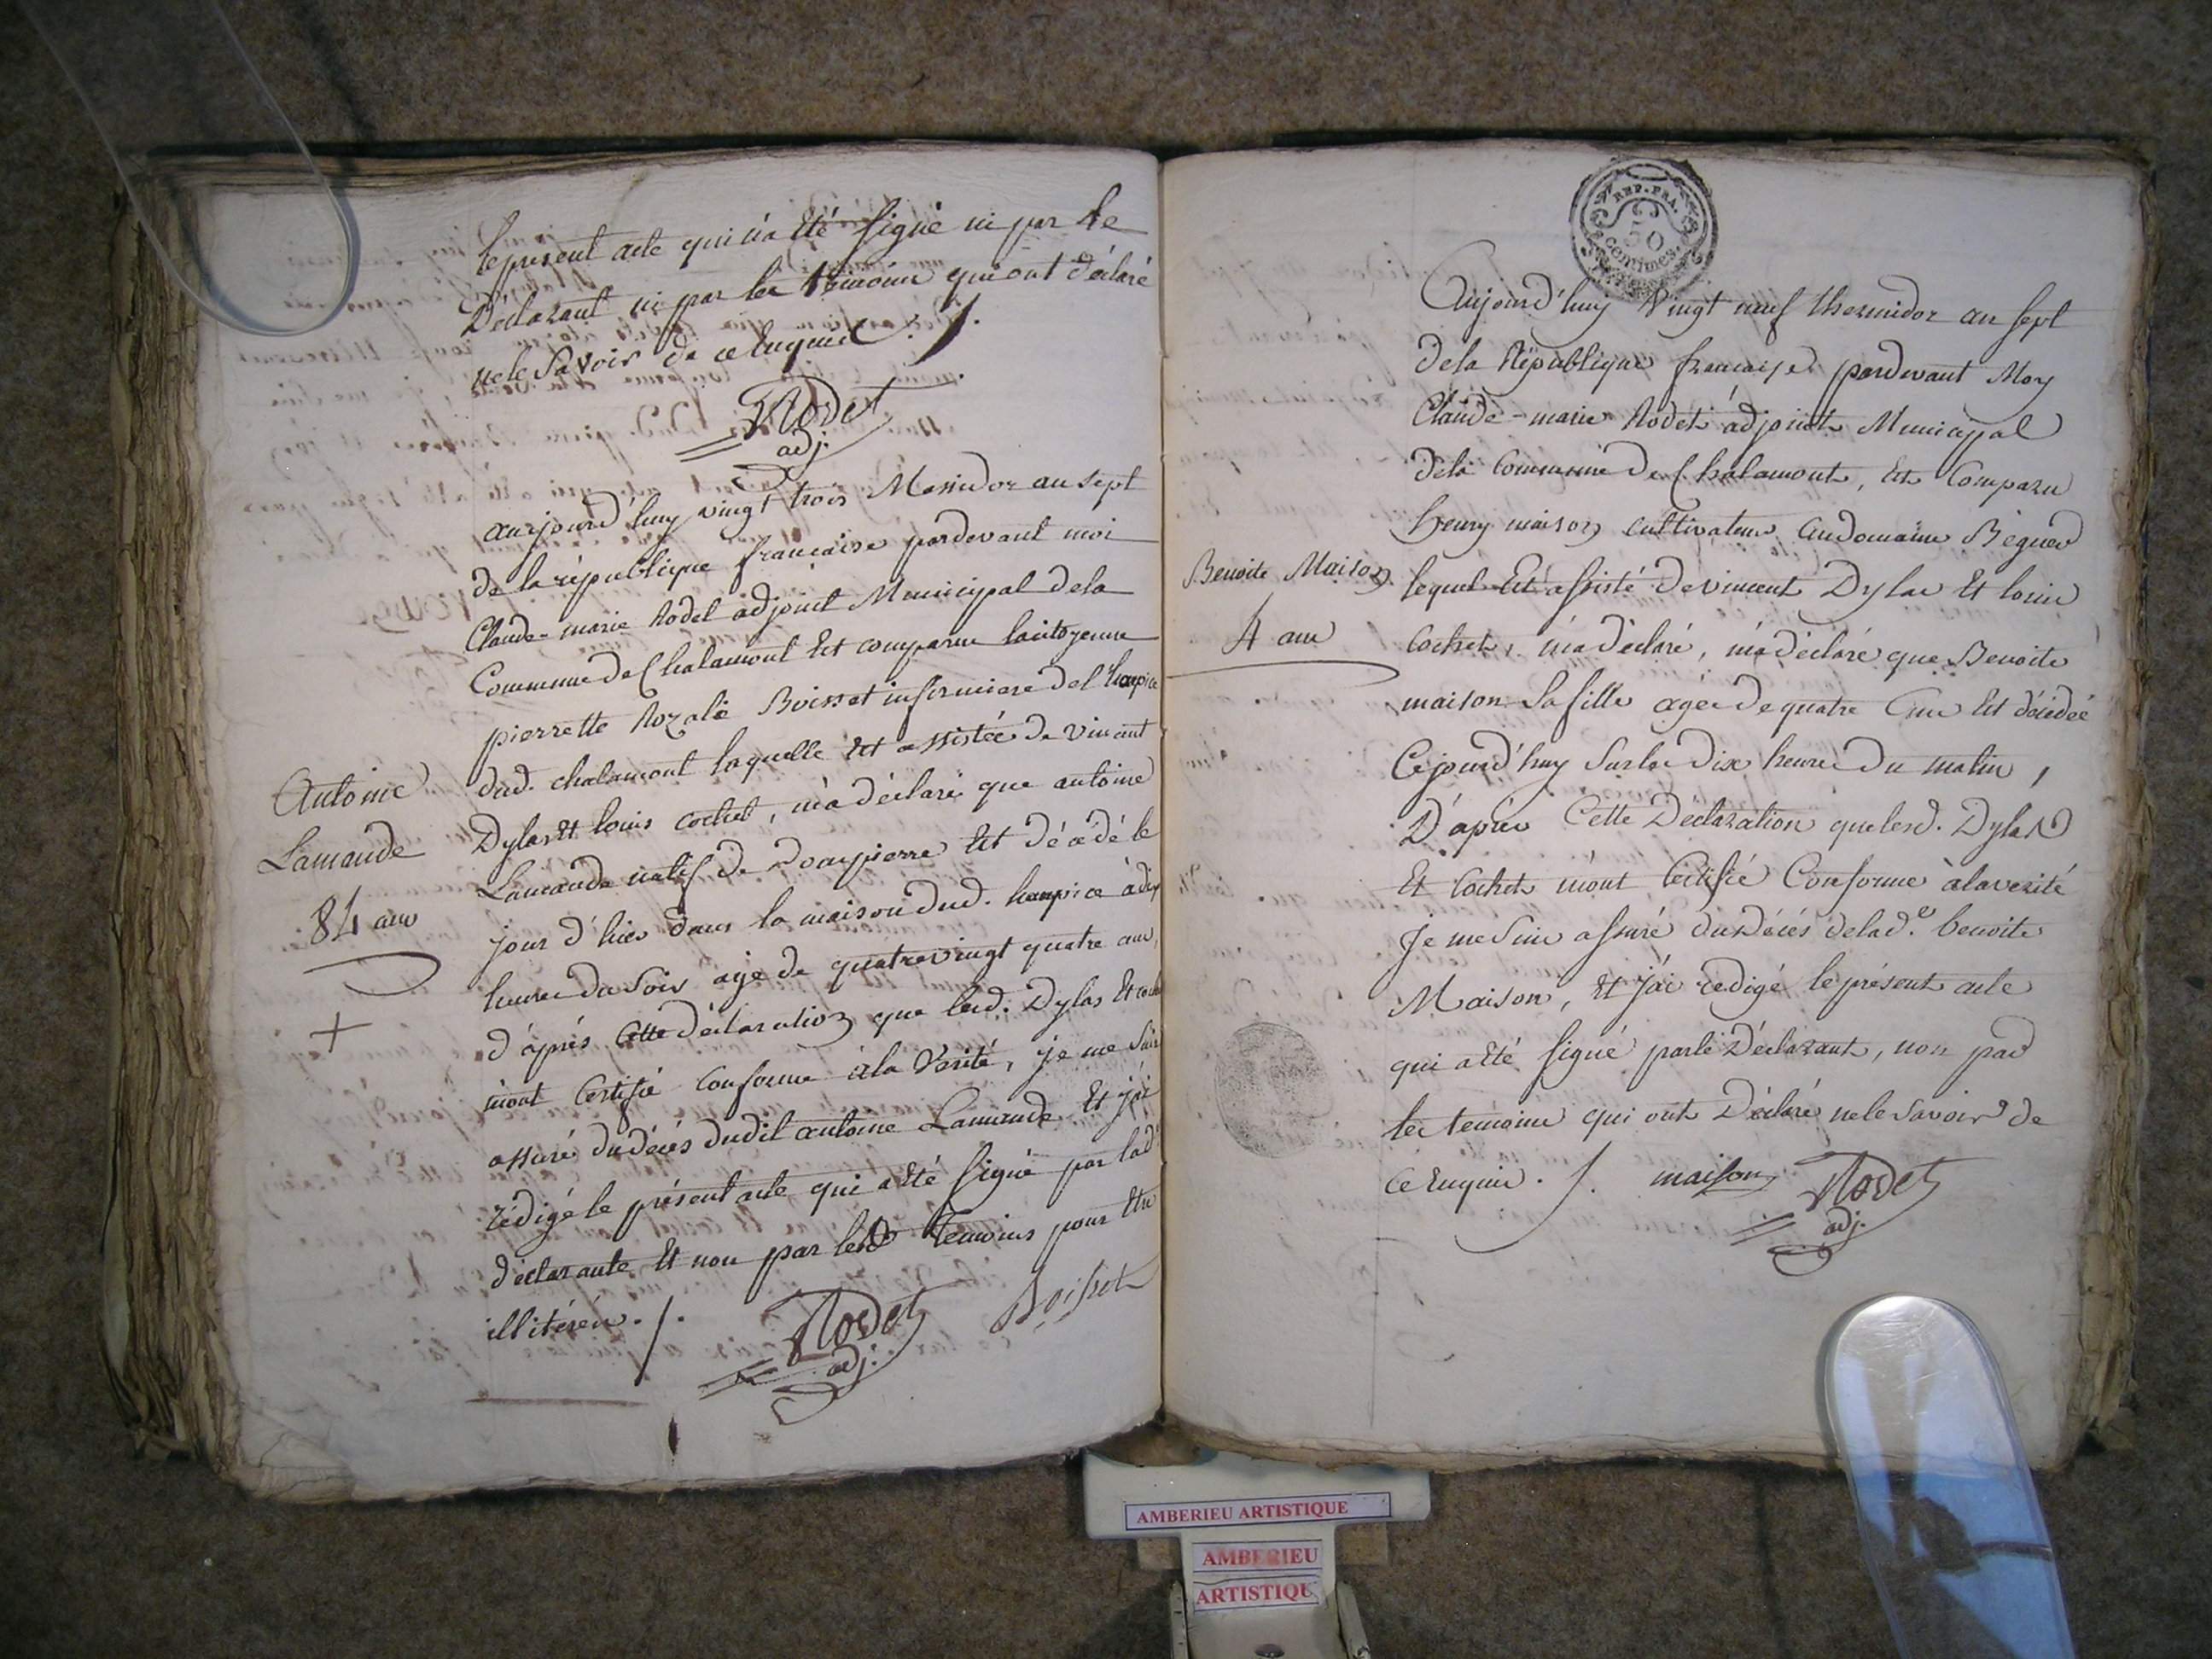 le present acte qui n'a Eté signé ni par le
Déclarant ni par les temoins qui ont déclaré
ne le Savoir de ce Enquis ./.
Rodet
adj.
aujourd'huy vingt trois Messidor an sept
de la république francaise pardevant moi
Claude-marie Rodet adjoint Municipal dela
Commune de Chalamont Est comparue la citoyenne
pierrette Rozalé Boisset infirmiere del'hospice
dud. chalamont laquelle Est assistée de vincent
Dylas Et louis cochet, m'a déclaré que antoine
Lamande natif de Dompierre Est décédé le
jour d'hier dans la maison dud. hospice à dix
heures du Soir age de quatrevingt quatre ans,
d'aprés Cette déclaration que lesd. Dylas Et cochet
m'ont Certifié Conforme àla Vérité, je me Suis
assuré du décés dudit antoine Lamande Et j'ai
rédigé le présent acte qui a Eté signé par lad.
déclarante Et non par lesd. Temoins pour Etre
illitérés ./.
Rodet
adj.
Boisset
Antoine
Lamande
84 ans
+
REP. FRA.
50
centimes.
Aujourd'huy Vingt neuf thermidor an sept
dela République francaise pardevant Moy
Claude-marie Rodet adjoint Municipal
dela Commune de Chalamont, Est Comparu
henry maison cultivateur au domaine Béguer
lequel Est assisté de vincent Dylas Et louis
Cochet, m'a déclaré, m'a déclaré que Benoite
maison Sa fille agée de quatre Ans Est décédée
Cejourd'huy Sur les Dix heures Du matin,
D'après Cette Déclaration que lesd. Dylas
Et Cochet m'ont Certifié Conforme à la verité
Je me Suis assuré du Décés de lad.e benoite
Maison, Et j'ai redigé le présent acte
qui a Eté signé par le Déclarant, non par
les temoins qui ont Déclaré ne le Savoir de
Ce Enquis ./.
maison
Rodet
adj.
Benoite Maison
4 ans
AMBERIEU ARTISTIQUE
AMBERIEU
ARTISTIQU